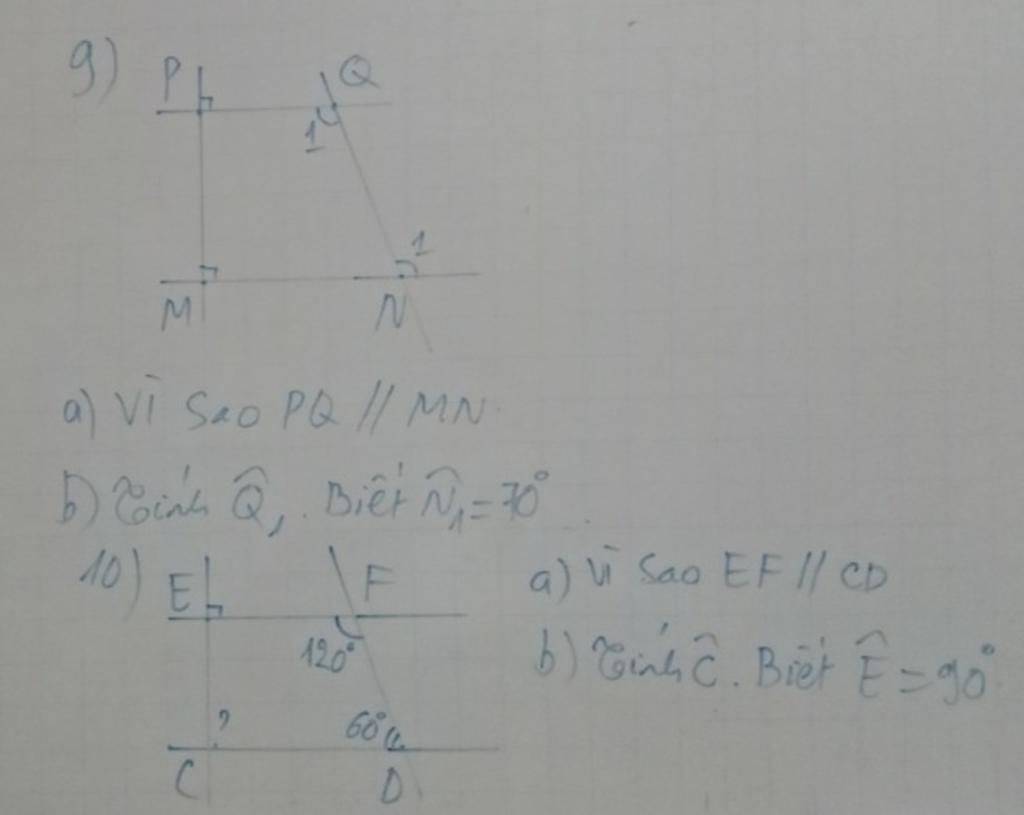 9) P Q
1
1
M N
a) Vì sao PQ // MN.
b) Tính Q̂₁. Biết N̂₁ = 70°.
10) E F
120°
? 60°
C D
a) Vì sao EF // CD
b) Tính Ĉ. Biết Ê = 90°